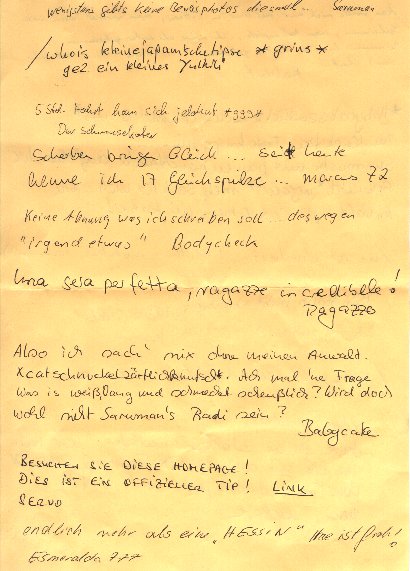 wenigstens gibts keine Beweisphotos diesmal... Saruman
/whois kleinejapanischetipse *grins*
gez ein kleines Yukiki
5 Std. Fahrt ham sich jelohnt *ggg*
Der Schmusekater
Scherben bringen Glück... seit heute
kenne ich 17 Glückspilze... marcus 72
Keine Ahnung was ich schreiben soll... deswegen
"irgend etwas" Bodycheck
Una sera perfetta, ragazze incredibile!
Ragazzo
Also ich sach' nix ohne meinen Anwalt.
Xcatschnuckelzärtlichknutsch. Ach mal 'ne Frage
was is weiß, lang und schmeckt scheußlich? Wird doch
wohl nicht Saruman's Radi sein?
Babycake
BESUCHEN SIE DIESE HOMEPAGE!
DIES IST EIN OFFIZIELLER TIP! LINK
SERVO
endlich mehr als eine "HESSIN" Ine ist froh!
Esmeralda 777